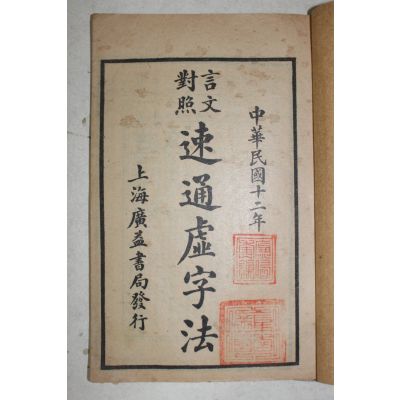 中華民國十二年
言文對照
速通虛字法
上海廣益書局發行